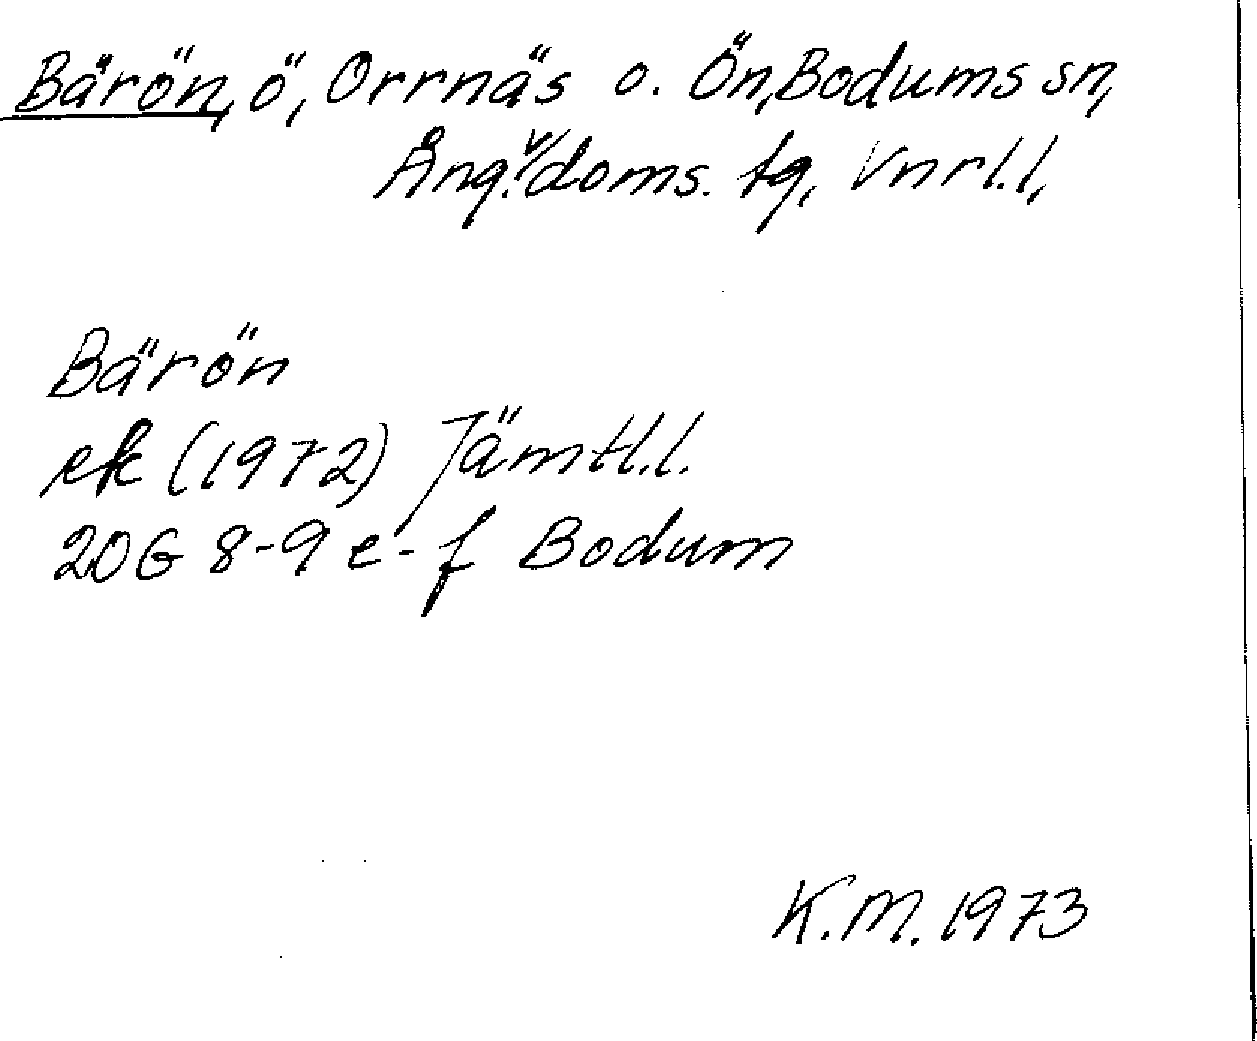 Bärön, ö, Orrnäs o. Ön, Bodums sn,
Ång. v. doms. tg, Vnrl. l,
Bärön
ek (1972) Jämtl. l.
20G 8-9 e-f Bodum
K.M. 1973